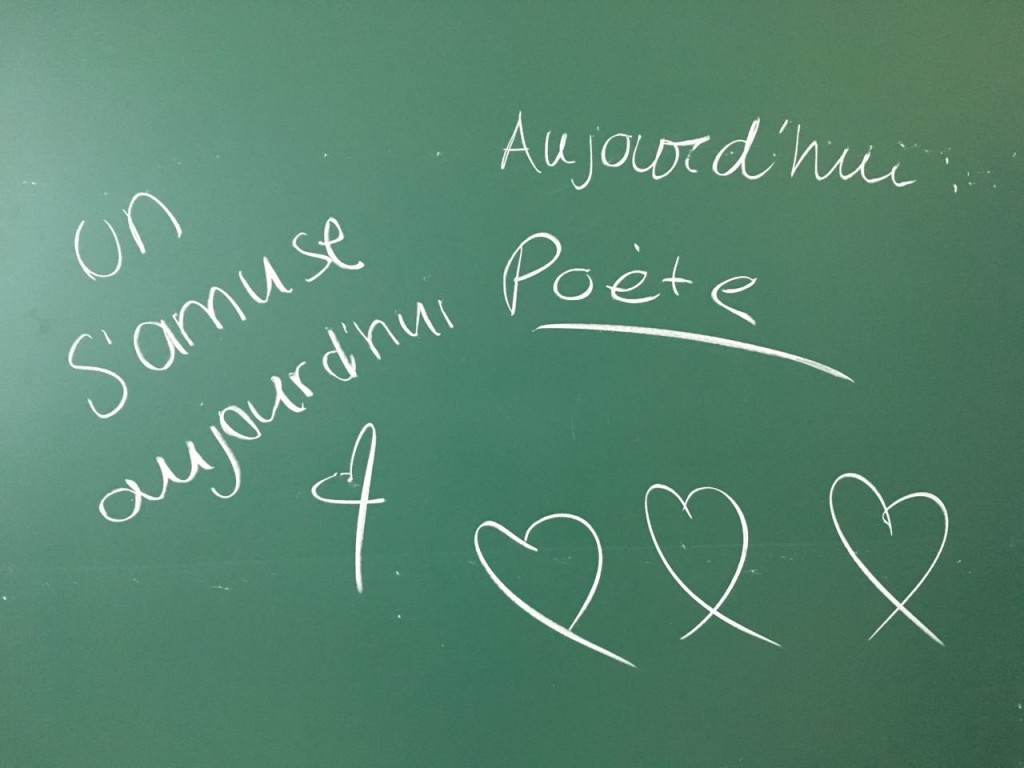 on
s'amuse
aujourd'hui
Aujourd'hui
Poète